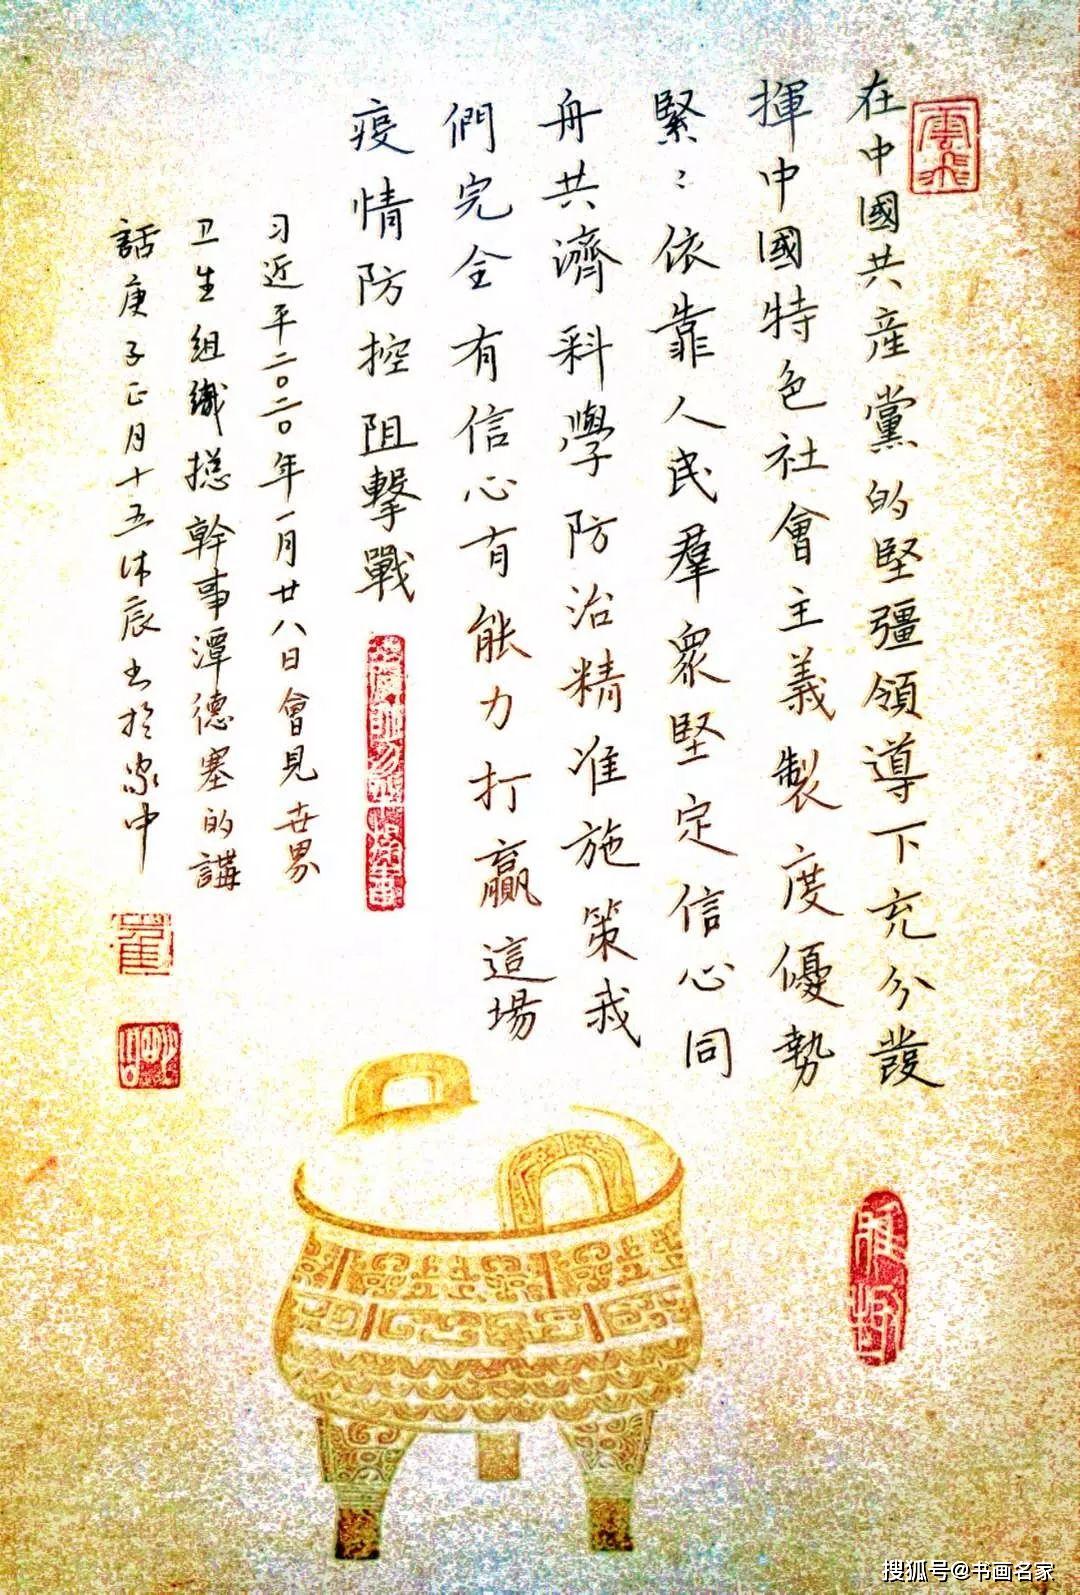 在中國共産黨的堅彊領導下充分發
揮中國特色社會主義製度優勢
緊〻依靠人民羣衆堅定信心同
舟共濟科學防治精准施策我
們完全有信心有能力打贏這場
疫情防控阻擊戰
习近平二〇二〇年一月廿八日會見世界
卫生组織揔幹事潭德塞的講
話庚子正月十五沐辰书於家中
搜狐号@书画名家